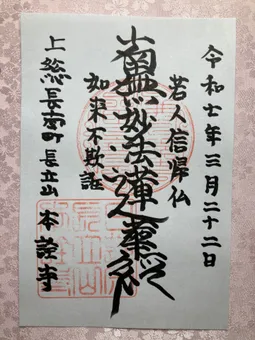 令和七年三月二十二日
若人信帰仏
南無妙法蓮華経
如来不欺誑
上総長南町長立山
本詮寺